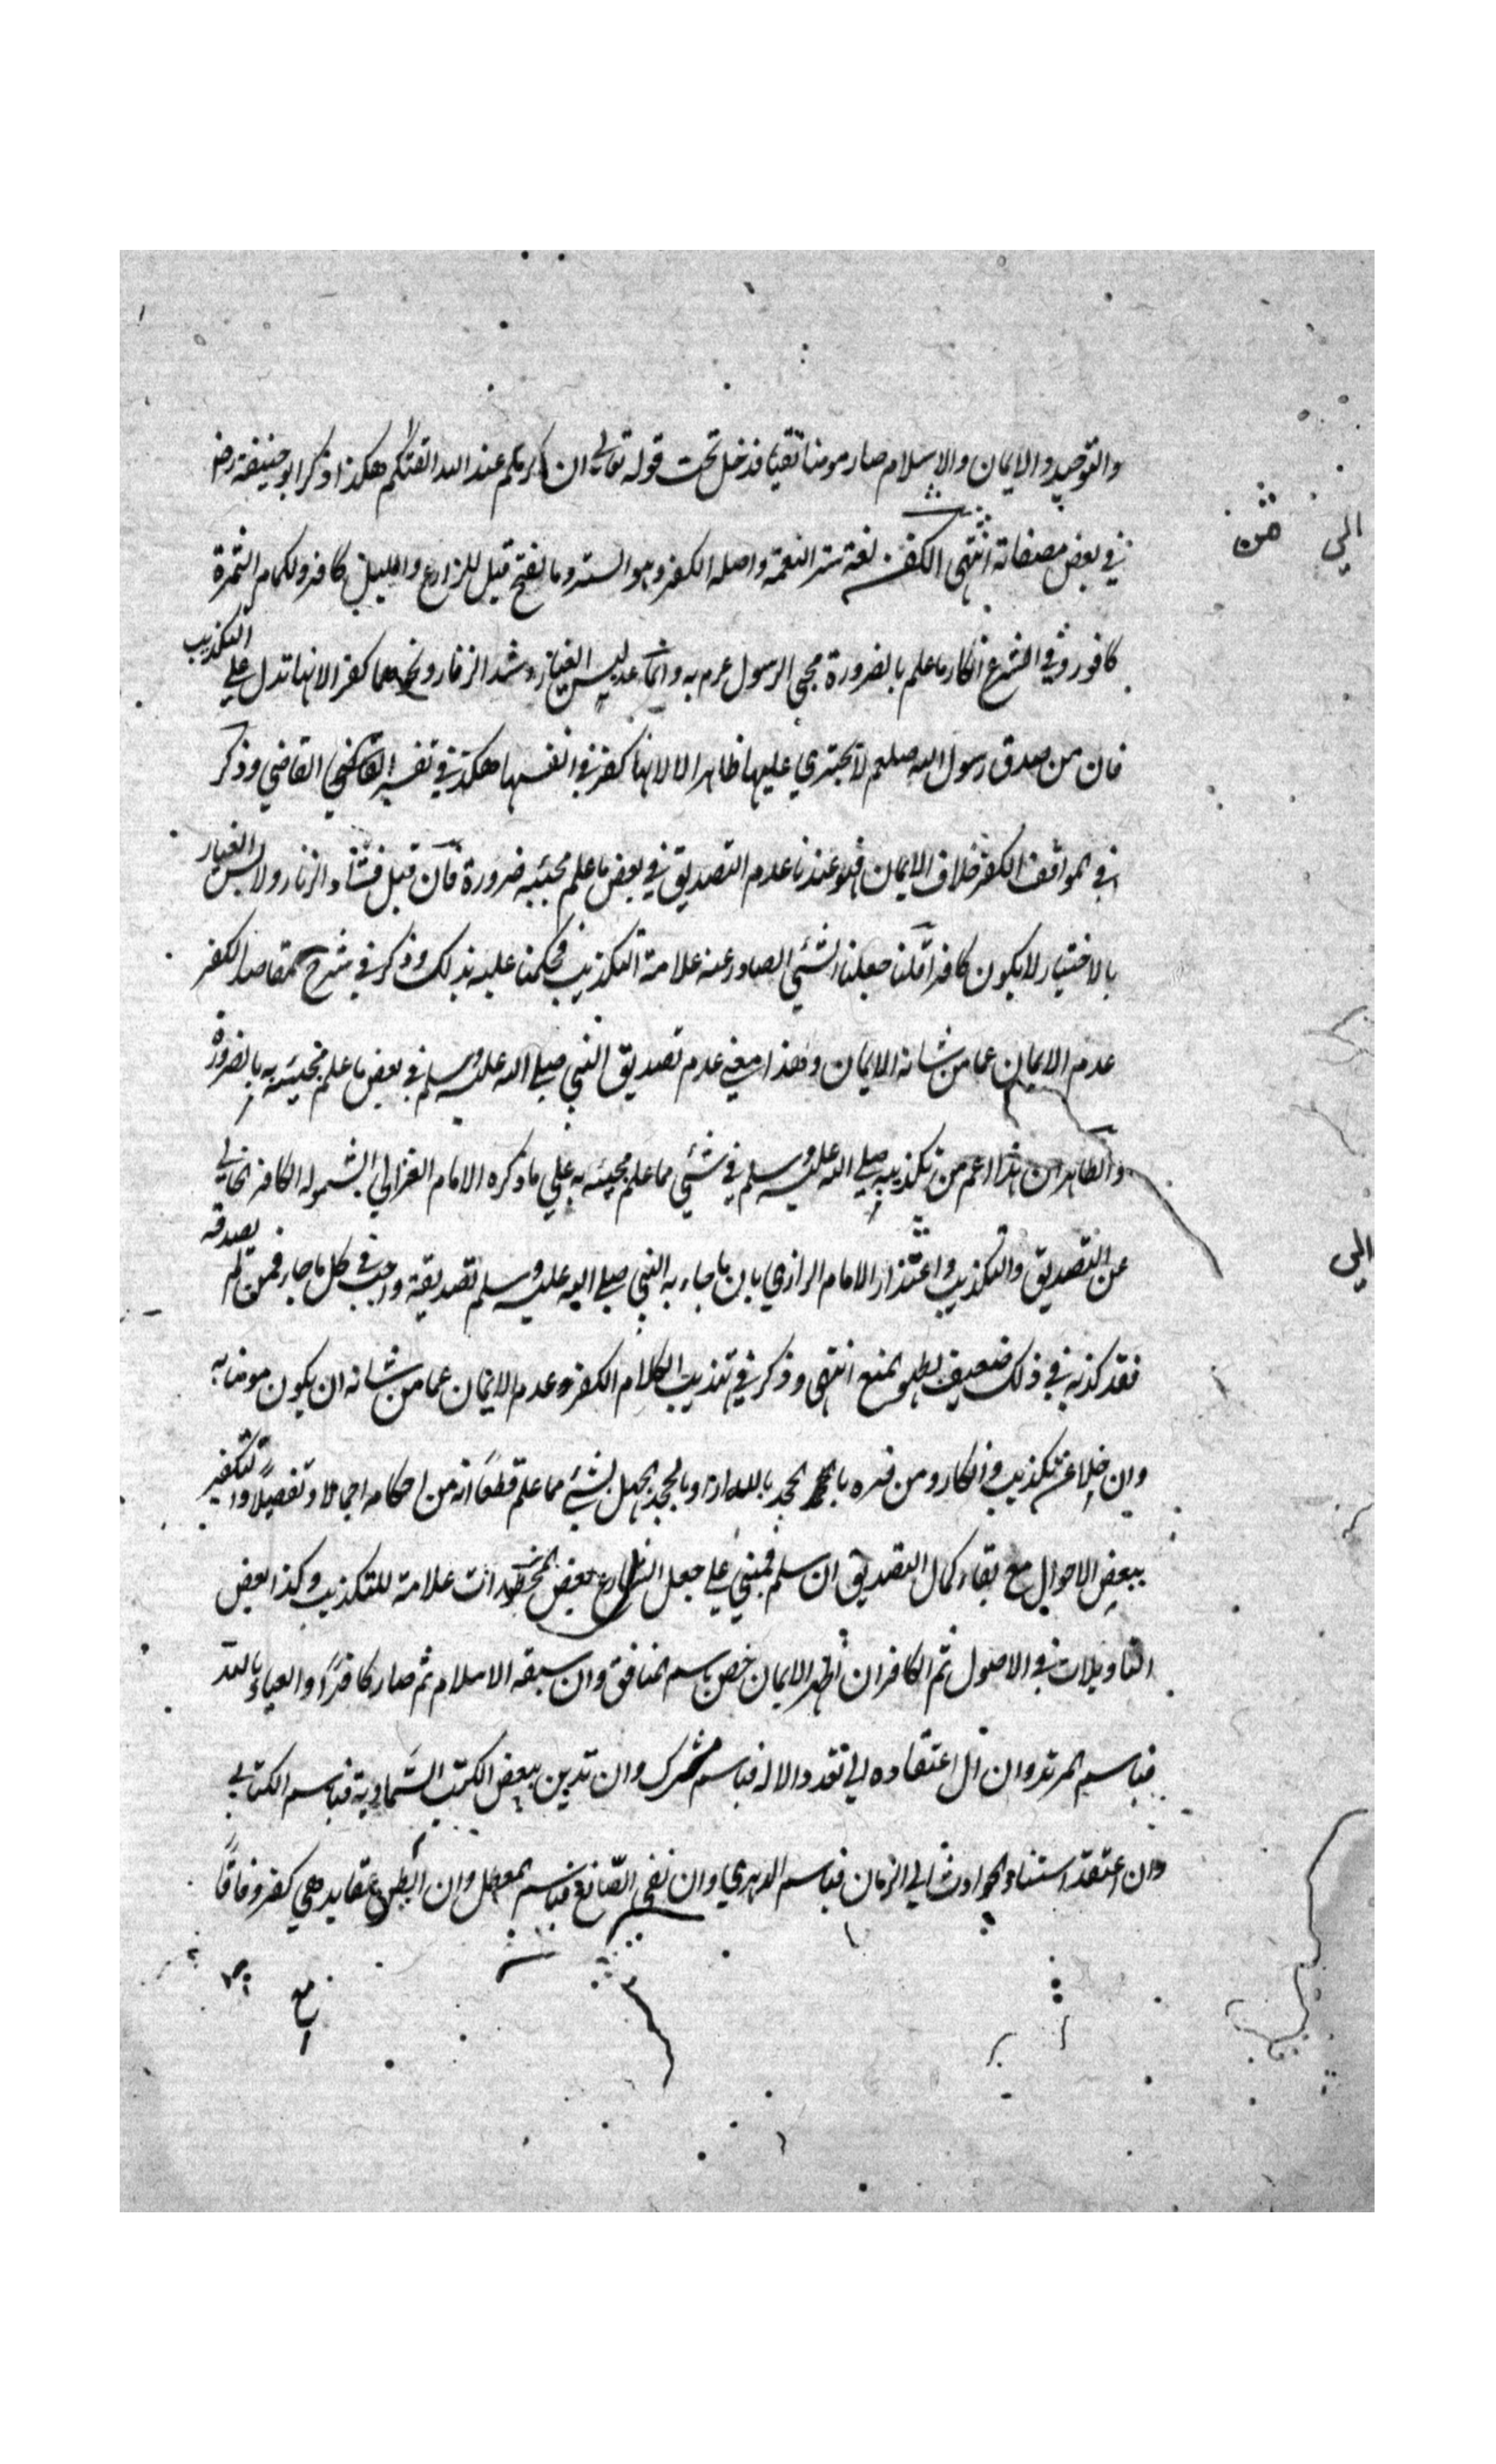 والتوحيد والايمان والاسلام صار مومنا تقيا فدخل تحت قوله تعالي ان اكرمكم عند الله اتقىكم هكذا ذكر ابو حنيفة رض
في بعض مصنفاته انتهى الكفر لغة ستر النعمة واصله الكفر وهو الستر وبالفتح قيل للزارع والليل كافر ولكمام الثمرة
كافور وفي الشرع انكار ما علم بالضرورة مجي الرسول عم به وانما عد لبس الغيار وشد الزنار ونحوهما كفرا لانها تدل علي التكذيب
فان من صدق رسول الله صلعم لا يجتري عليها ظاهرا لا لانها كفر في انفسها هكذا في تفسير القاضي وذكر
في المواقف الكفر خلاف الايمان فهو عندنا عدم التصديق في بعض ما علم مجيئه ضرورة فان قيل فشاد الزنار ولابس الغيار
بالاختيار لا يكون كافرا قلنا جعلنا الشئي الصادر عنه علامة التكذيب فحكمنا عليه بذلك وذكر في شرح المقاصد الكفر
عدم الايمان عما من شانه الايمان وهذا معني عدم تصديق النبي صلي الله عليه وسلم في بعض ما علم مجيئه به بالضرورة
والظاهر ان هذا اعم من تكذيبه صلي الله عليه وسلم في شئي مما علم مجيئه به علي ما ذكره الامام الغزالي لشموله الكافر الخالي
عن التصديق والتكذيب واعتذار الامام الرازي بان ما جاء به النبي صلي الله عليه وسلم تصديقه واجب في كل ما جاء فمن لم يصدقه
فقد كذبه في ذلك ضعيف لظهور المنع انتهى وذكر في تهذيب الكلام الكفر وعدم الايمان عما من شانه ان يكون مومنا به
وان خلا عن تكذيب وانكار ومن فسره بالجحد بالله اراد بالجحد الجهل بشئي مما علم قطعا انه من احكامه اجمالا وتفصيلا والتكفير
ببعض الاحوال مع بقاء كمال التصديق ان سلم فمبني علي جعل الشارع بعض المحظورات علامة للتكذيب وكذا بعض
التاويلات في الاصول ثم الكافر ان اظهر الايمان خص باسم المنافق وان سبقه الاسلام ثم صار كافرًا والعياذ بالله
فباسم المرتد وان ال اعتقاده الي تعدد الاله فباسم المشرك وان تدين ببعض الكتب السماوية فباسم الكتابي
وان اعتقد استناد الحوادث الي الزمان فباسم الدهري وان نفي الصّانع فباسم المعطل وان ابطن عقايد هي كفر وفاقًا
الي
من
الي